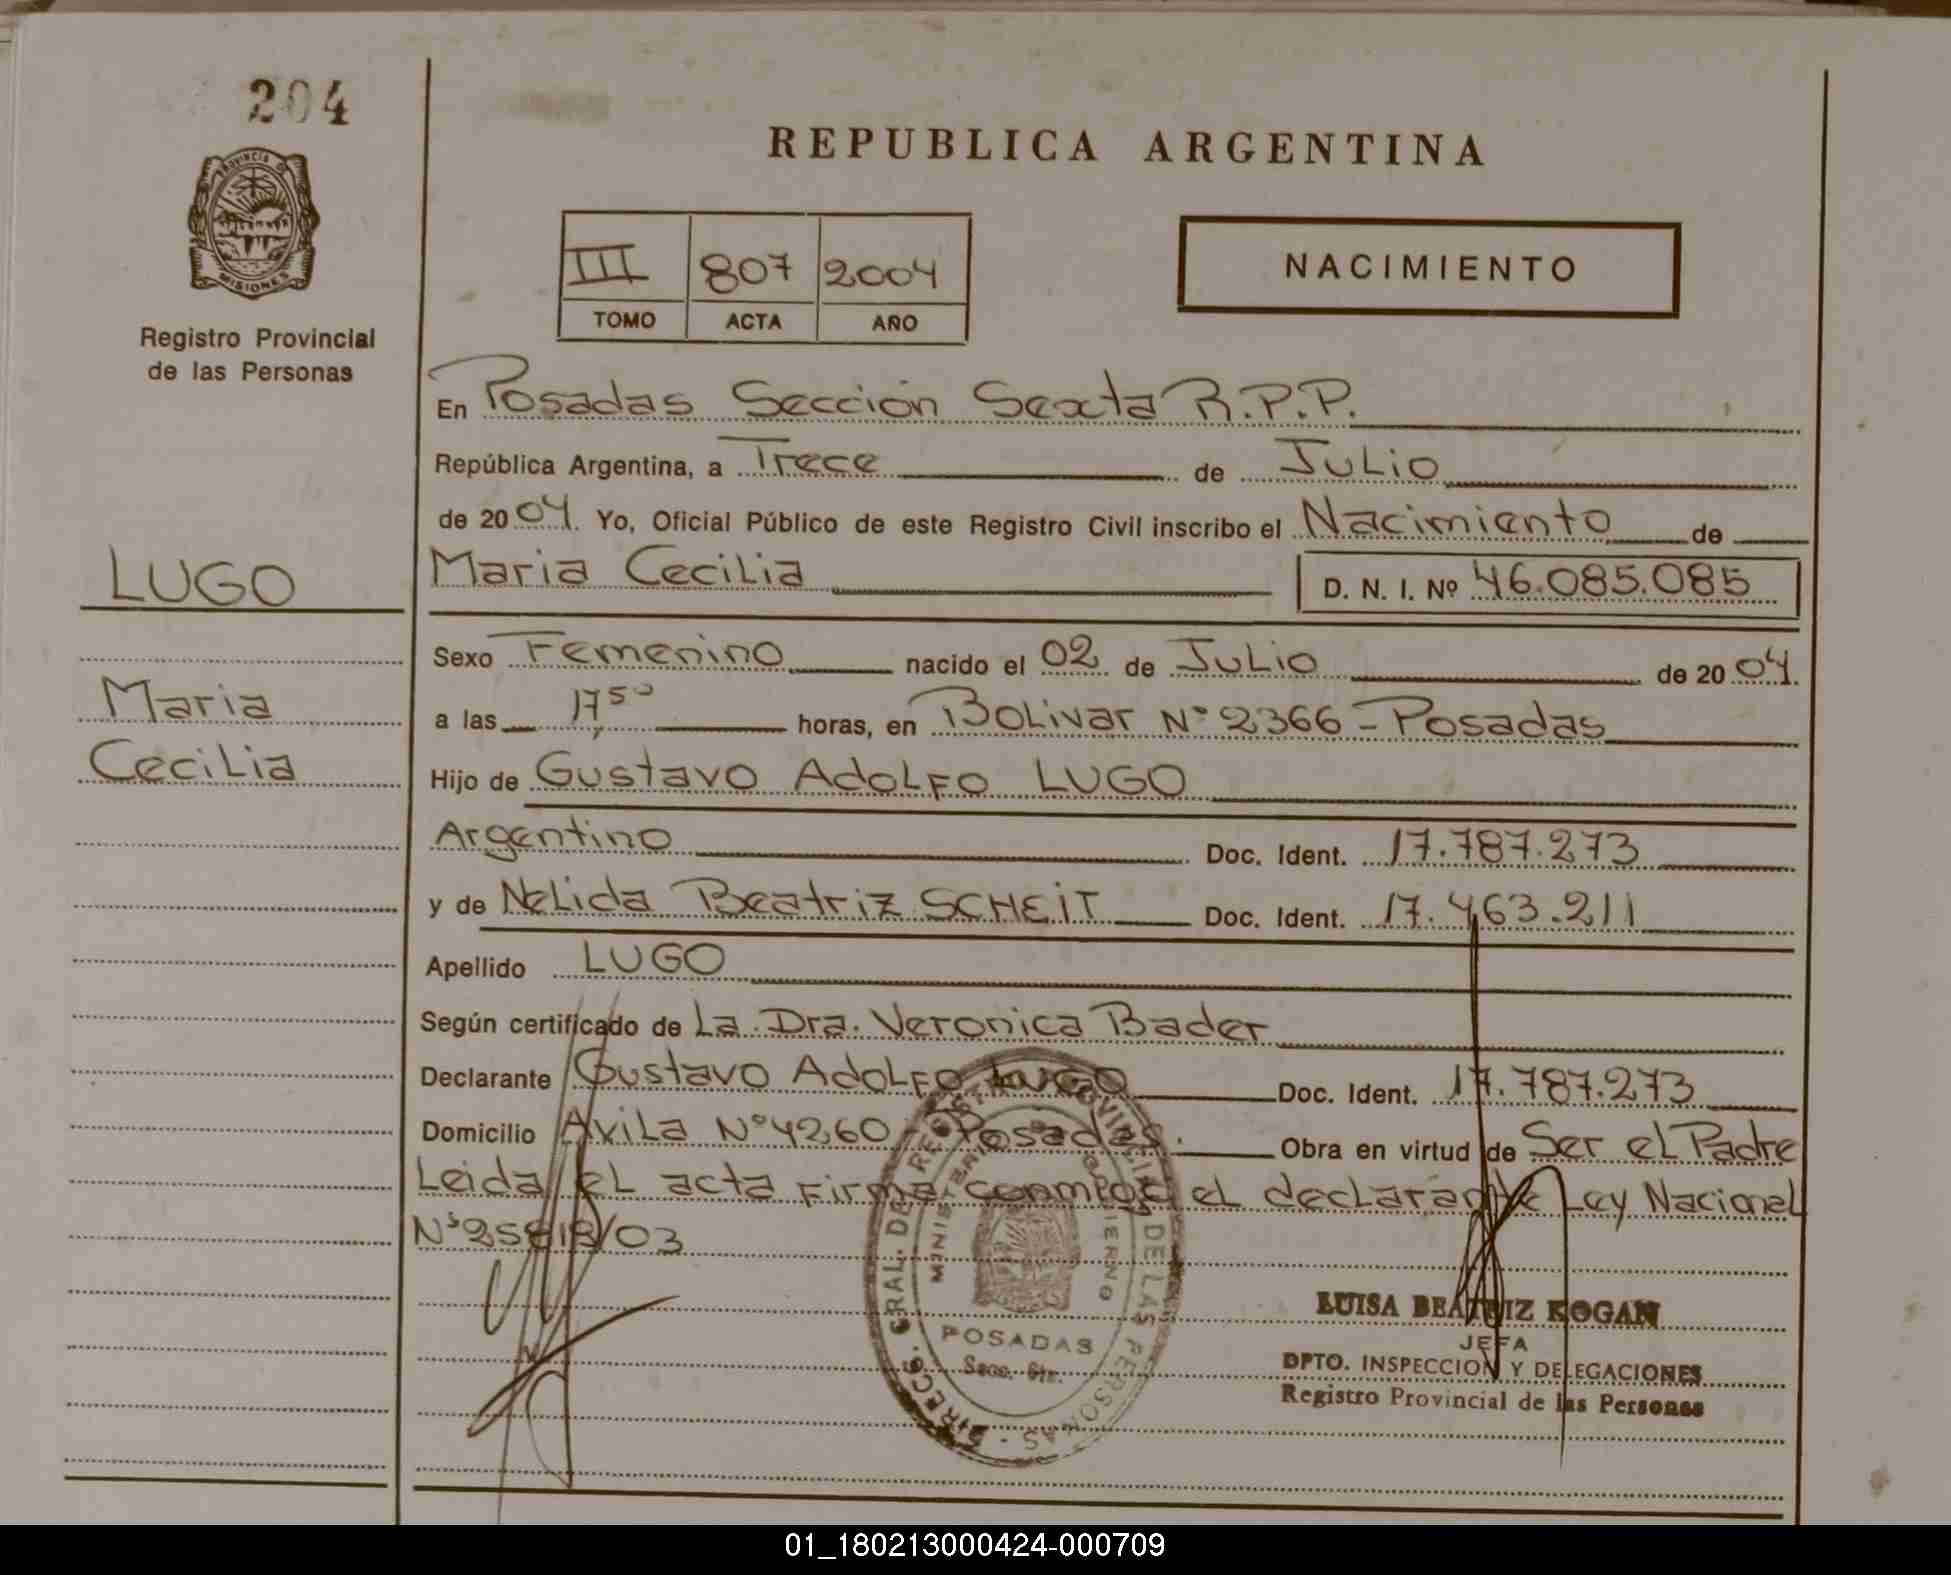 204
PROVINCIA DE
MISIONES
Registro Provincial
de las Personas
LUGO
Maria
Cecilia
REPUBLICA ARGENTINA
III 807 2004
TOMO ACTA AÑO
NACIMIENTO
En Posadas Sección Sexta R.P.P.
República Argentina, a Trece de Julio
de 2004. Yo, Oficial Público de este Registro Civil inscribo el Nacimiento de
Maria Cecilia D. N. I. Nº 46.085.085
Sexo Femenino nacido el 02 de Julio de 2004.
a las 17,50 horas, en Bolivar N° 2366 - Posadas
Hijo de Gustavo Adolfo LUGO
Argentino Doc. Ident. 17.787.273
y de Nelida Beatriz SCHEiT Doc. Ident. 17.463.211
Apellido LUGO
Según certificado de La Dra. Veronica Bader
Declarante Gustavo Adolfo LUGO Doc. Ident. 17.787.273
Domicilio Avila N° 4260 - Posadas. Obra en virtud de Ser el Padre
Leida el acta firma conmigo el declarante Ley Nacional
N° 25818/03
DIRECC. GRAL. DE REGISTRO PROVINCIAL DE LAS PERSONAS
MINISTERIO GOBIERNO
POSADAS
Secc. 6ta.
LUISA BEATRIZ KOGAN
JEFA
DPTO. INSPECCION Y DELEGACIONES
Registro Provincial de las Personas
01_180213000424-000709